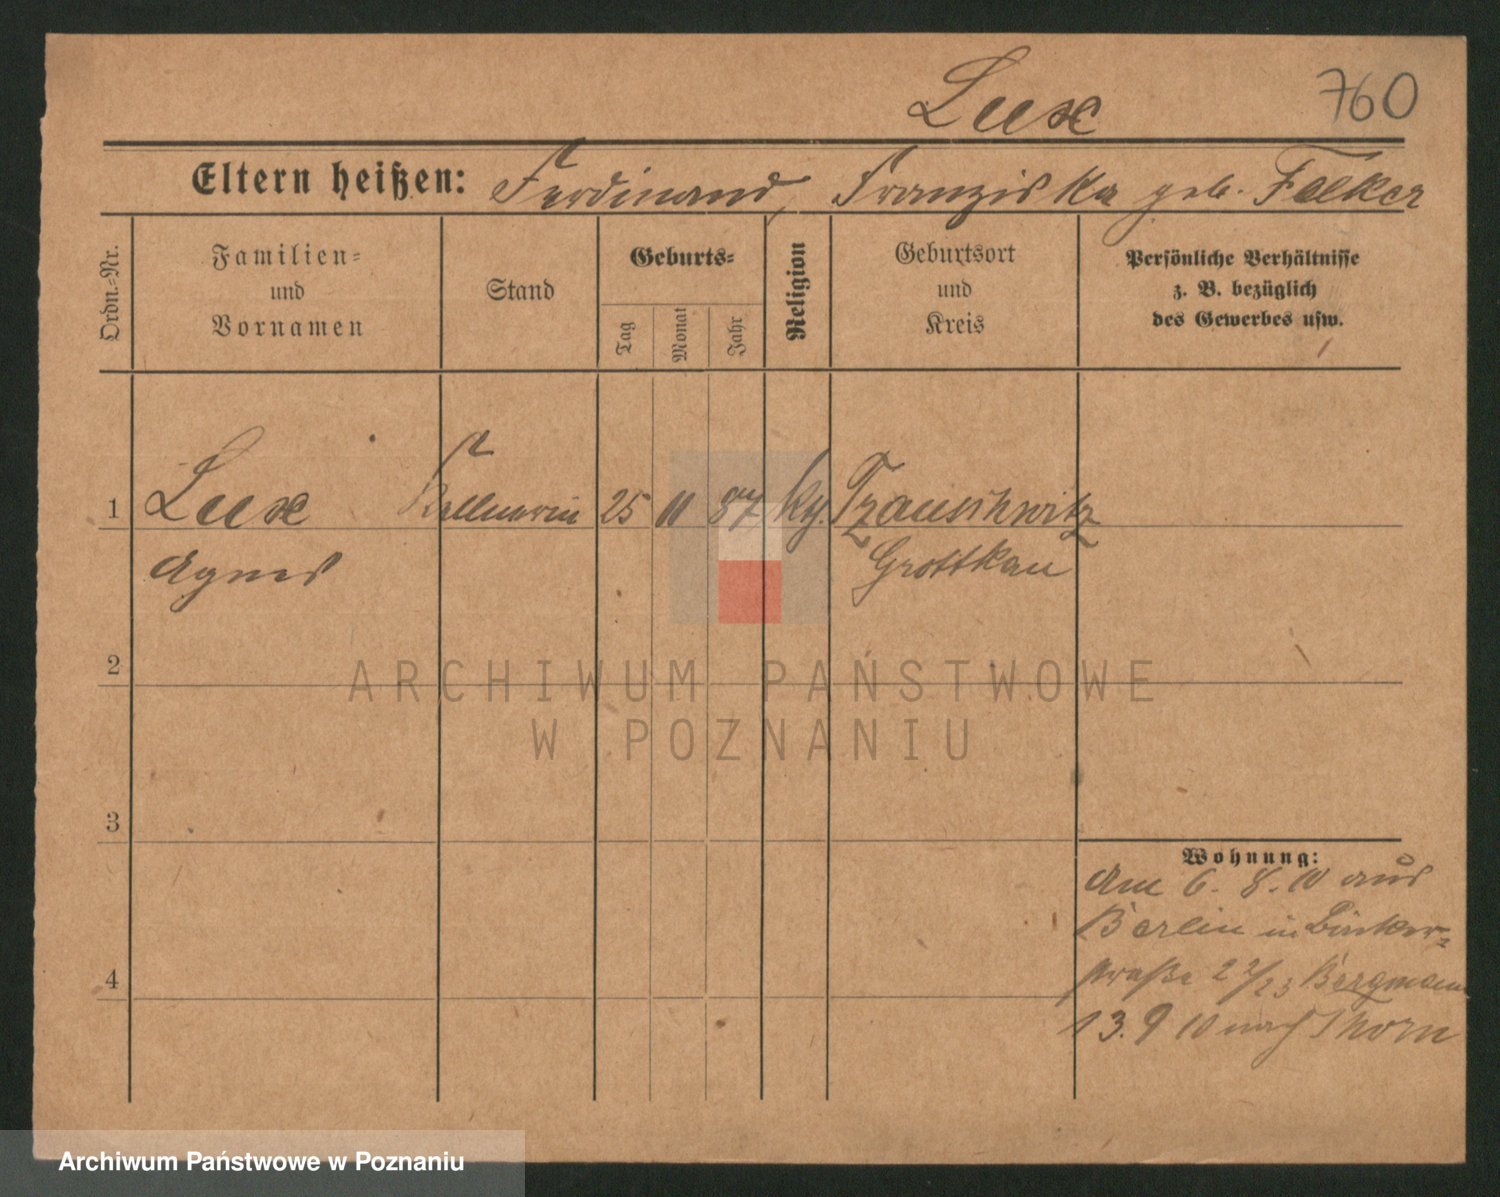 Lux
760
Eltern heißen: Ferdinand, Franziska geb. Felker
Ordn.-Nr.
Familien-
und
Vornamen
Stand
Geburts-
Tag
Monat
Jahr
Religion
Geburtsort
und
Kreis
Persönliche Verhältnisse
z. B. bezüglich
des Gewerbes usw.
1 Lux Kellnerin 25 11 87 Tzauschwitz
Agnes Grottkau
2
3
4
Wohnung:
Am 6. 8. 10 aus
Berlin in Bäcker-
straße 22/23 Bergmann
13. 9 10 nach Thorn
ARCHIWUM PAŃSTWOWE
W POZNANIU
Archiwum Państwowe w Poznaniu